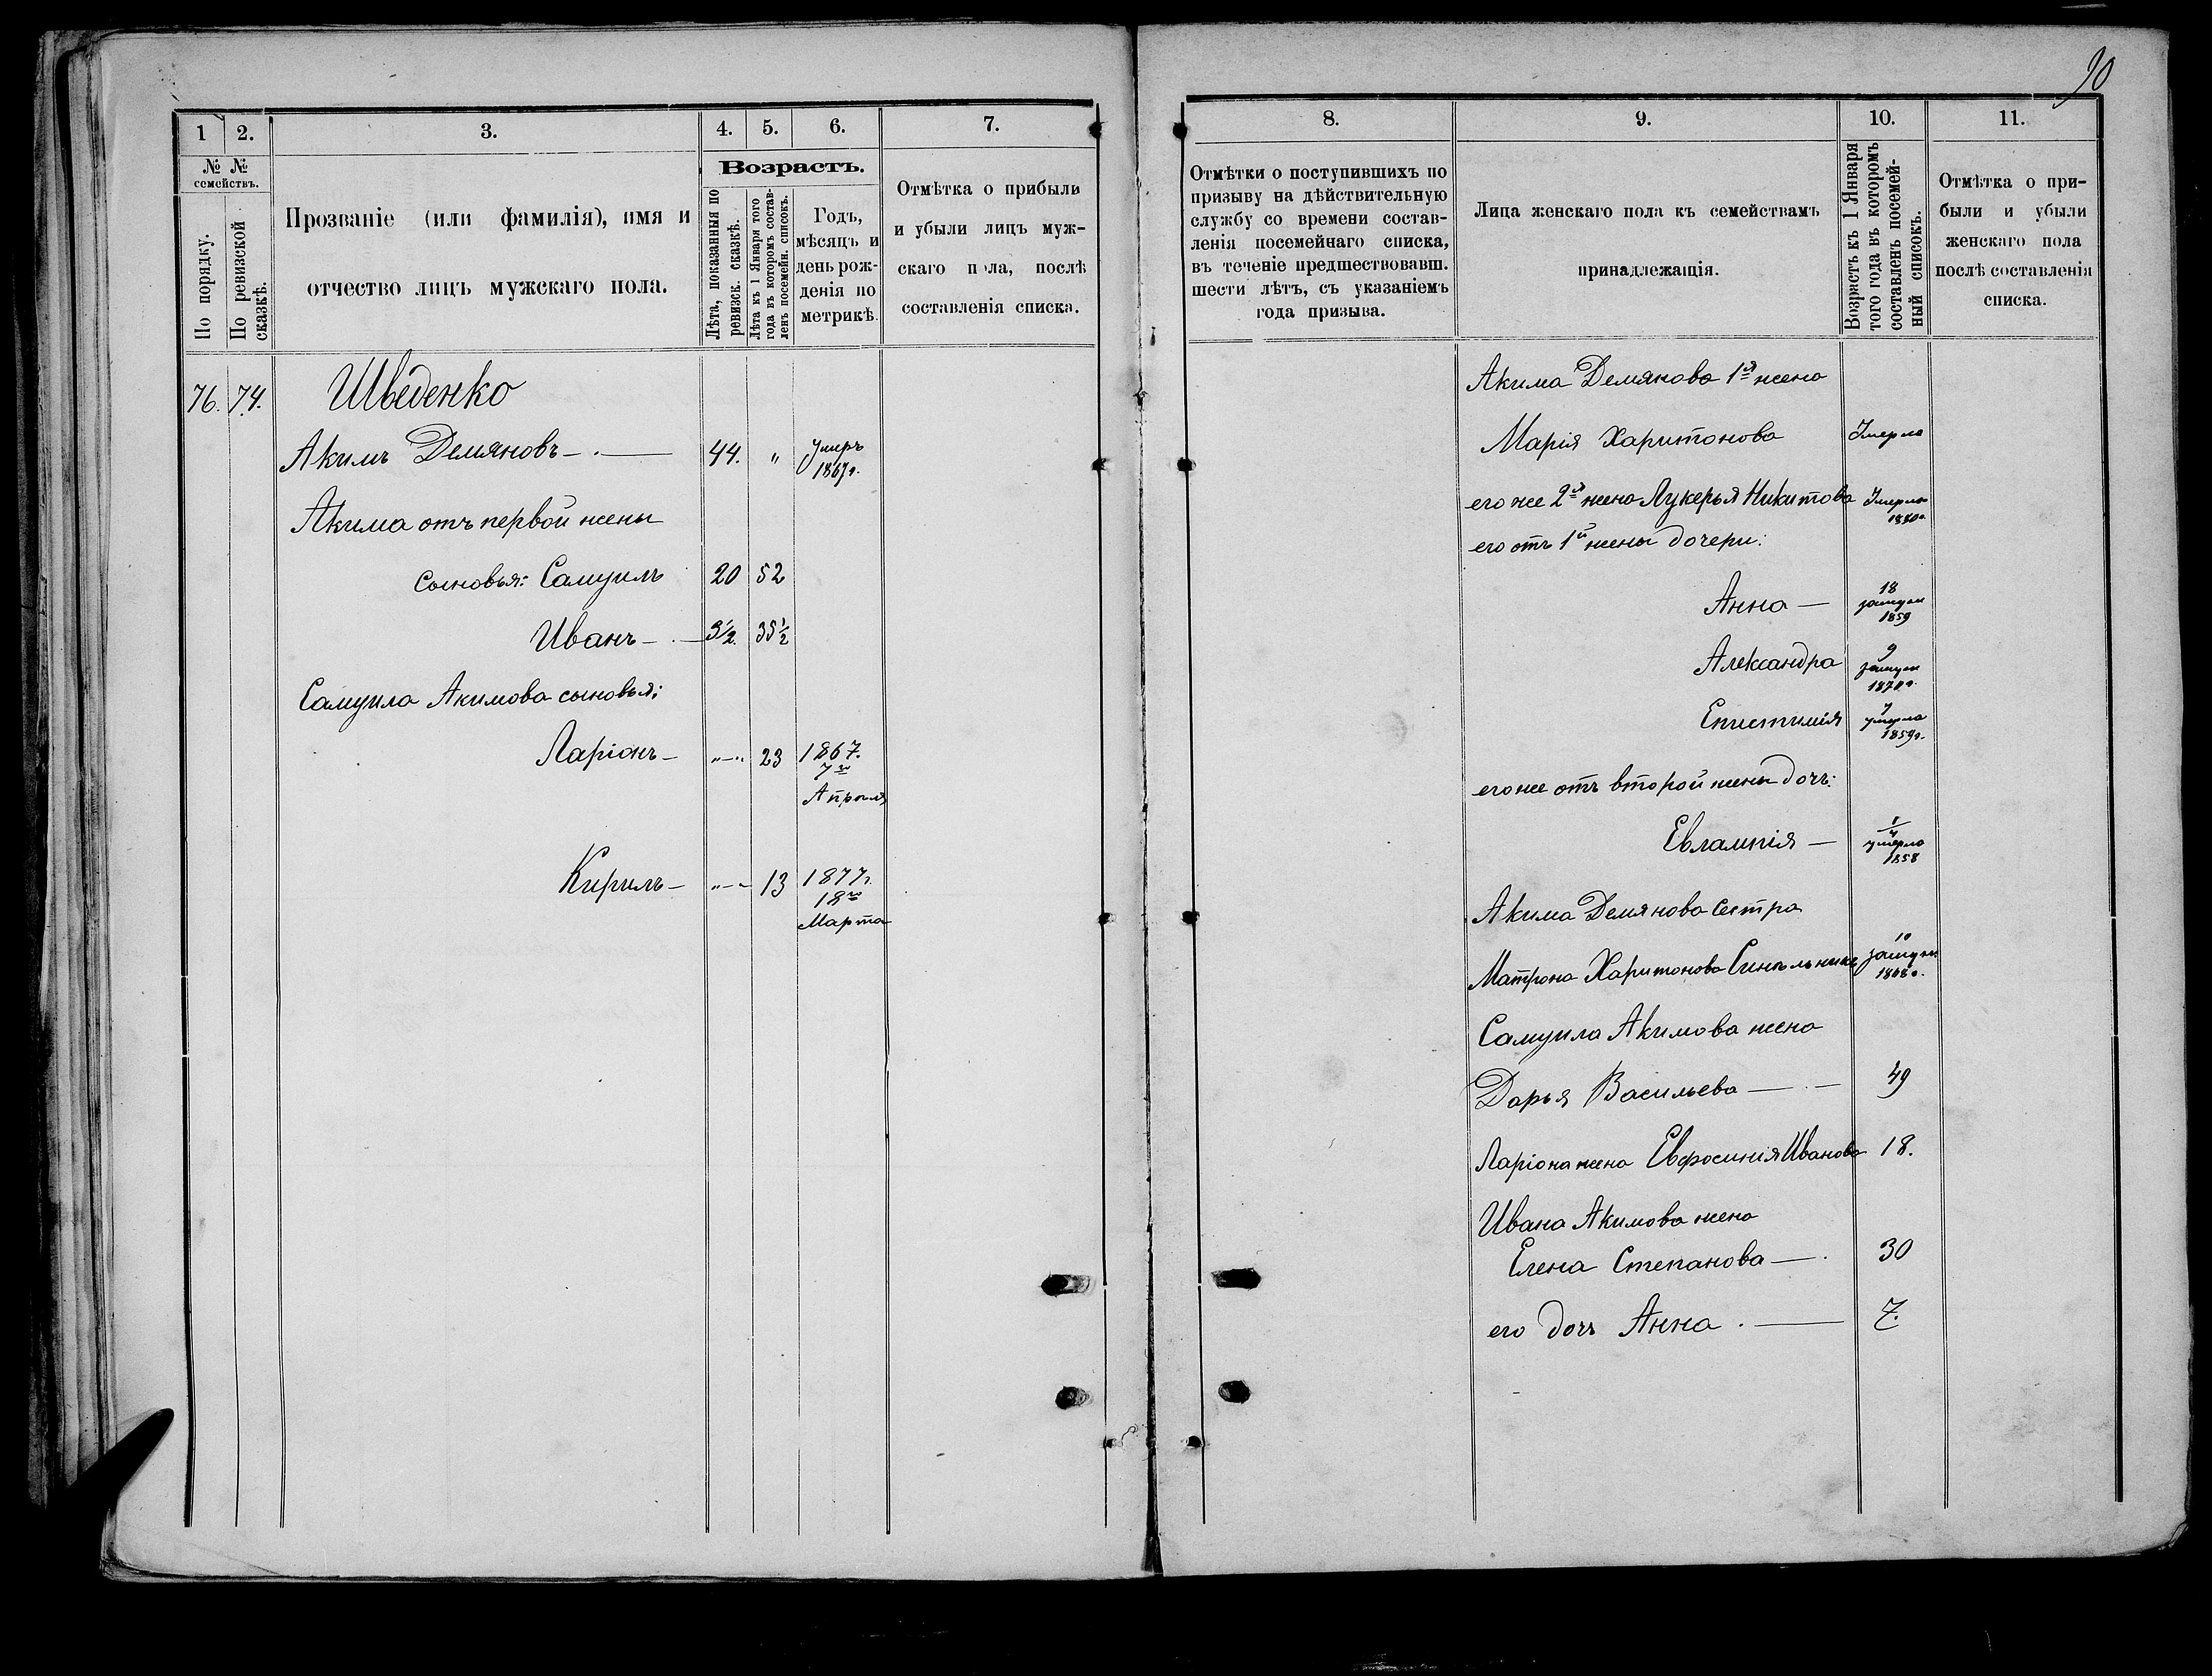 90
1 2. 3. 4. 5. 6. 7.
№ № семействъ.
По порядку.
По ревизской сказкѣ.
Прозваніе (или фамилія), имя и
отчество лицъ мужскаго пола.
Возрастъ.
Лѣта, показанныя по
ревизск. сказкѣ.
Лѣта къ 1 Января того
года въ которомъ состав-
ленъ посемейн. списокъ.
Годъ,
мѣсяцъ и
день рож-
денія по
метрикѣ.
Отмѣтка о прибыли
и убыли лицъ муж-
скаго пола, послѣ
составленія списка.
76. 74. Шведенко
Акимъ Демяновъ — 44. " Умеръ
1867 г.
Акима отъ первой жены
сыновья: Самуилъ 20 52
Иванъ — 3½ 35½
Самуила Акимова сыновья:
Ларіонъ — "—" 23 1867.
7го
Апреля
Кирилъ — "—" 13 1877 г.
18го
Марта
8. 9. 10. 11.
Отмѣтки о поступившихъ по
призыву на дѣйствительную
службу со времени состав-
ленія посемейнаго списка,
въ теченіе предшествовавш.
шести лѣтъ, съ указаніемъ
года призыва.
Лица женскаго пола къ семействамъ
принадлежащія.
Возрастъ къ 1 Января
того года въ которомъ
составленъ посемей-
ный списокъ.
Отмѣтка о при-
были и убыли
женскаго пола
послѣ составленія
списка.
Акима Демянова 1я жена
Марія Харитонова Умерла
его же 2я жена Лукерья Никитова Умерла
1880 г.
его отъ 1й жены дочери:
Анна — 18
замуж
1859
Александра 9
замуж
Епистимія умерла
1859 г.
его же отъ второй жены дочь:
Евлампія — умерла
1858
Акима Демянова сестра
Матрона Харитонова 10
замуж
1868 г.
Самуила Акимова жена
Дарья Васильева — 49
Ларіона жена Евфросинія Иванова 18.
Ивана Акимова жена
Елена Степанова — 30
его дочь Анна. — 7.